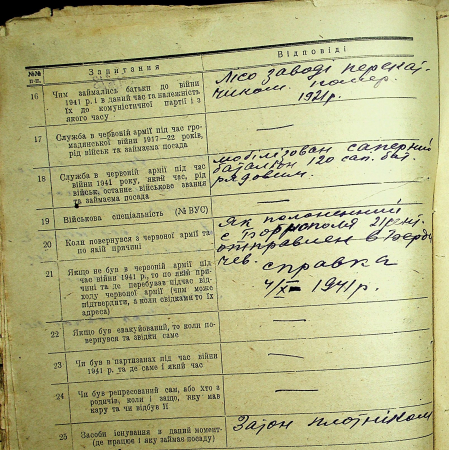 №№ п-п. Запитання Відповіді
16 Чим займались батьки до війни
1941 р. і в даний час та належність
їх до комуністичної партії і з
якого часу
Лісо заводі
помер.
1921р.
17 Служба в червоній армії під час гро-
мадянської війни 1917—22 років,
рід військ та займаєма посада
18 Служба в червоній армії під час
війни 1941 року, який час, рід
військ, останнє військове звання
та займаєма посада
мобілізован саперний
баталіон 120 сап. бат.
рядовим.
19 Військова спеціяльність (№ ВУС)
20 Коли повернувся з червоної армії та
по якій причині
Як полоненний
с Тернополя
отправлен в
чев.
21 Якщо не був в червоній армії під
час війни 1941 р., то по якій при-
чині та де перебував підчас від-
ходу червоної армії (чим може
підтвердити, а коли свідками то їх
адреса)
справка
4/XI 1941р.
22 Якщо був евакуйований, то коли по-
вернувся та звідки саме
23 Чи був в партизанах під час війни
1941 р. та де саме і який час
24 Чи був репресований сам, або хто з
родичів, коли і защо, яку мав
кару та чи відбув її
25 Засоби існування в даний момент
(де працює і яку займає посаду)
Затон плотніком